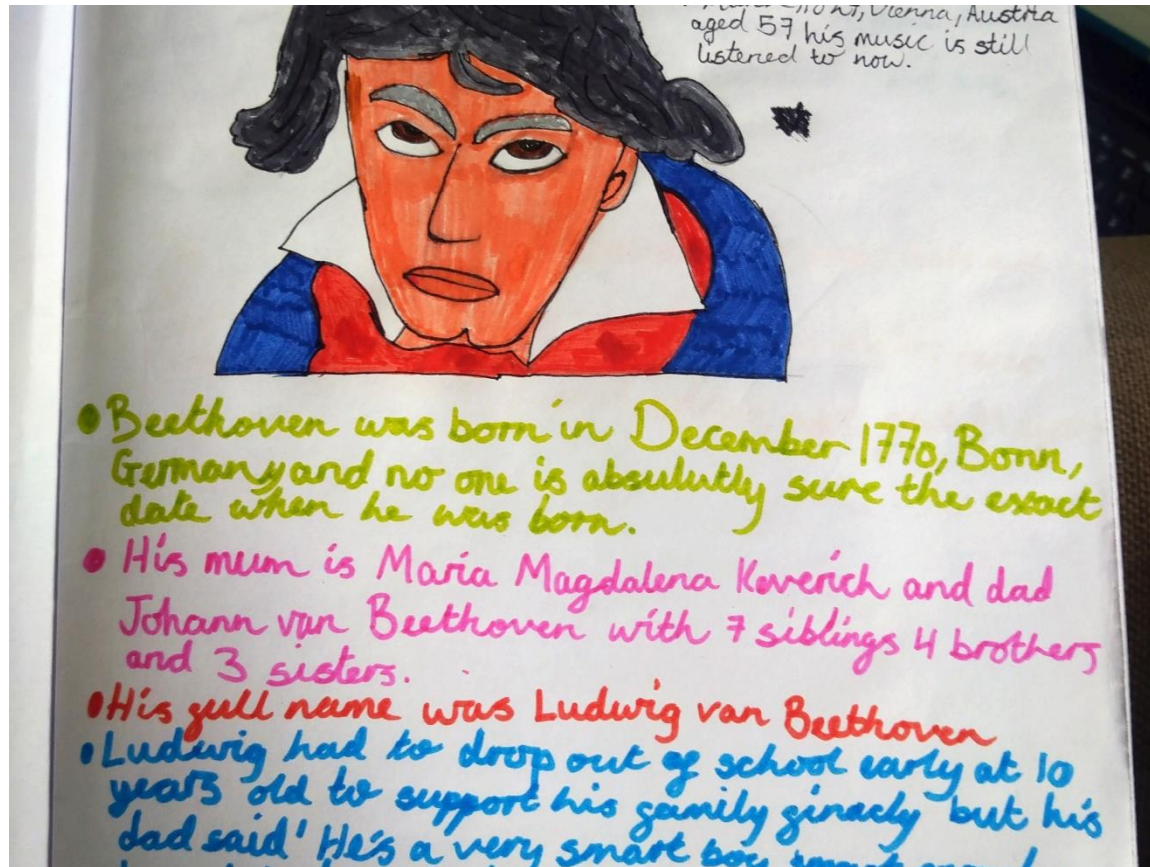 Vienna, Austria
aged 57 his music is still
listened to now.
Beethoven was born in December 1770, Bonn,
Germany and no one is absulutly sure the exact
date when he was born.
His mum is Maria Magdalena Keverich and dad
Johann van Beethoven with 7 siblings 4 brothers
and 3 sisters.
His full name was Ludwig van Beethoven
Ludwig had to drop out of school early at 10
years old to support his family but his
dad said' He's a very smart boy